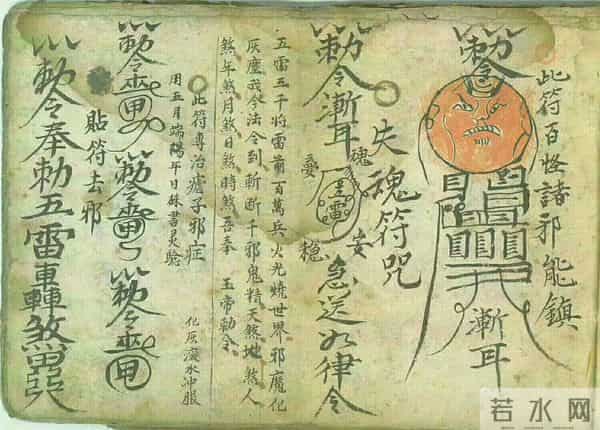 此符百怪諸邪能鎮
勅令
漸耳
失魂符咒
魂安
勅令漸耳
雷
急送乃律令
穩
五雷三千將雷霄百萬兵火光燒世界邪魔化
灰塵我令法令到斬斷千邪鬼精天煞地煞人
煞年煞月煞日煞時煞吾奉 玉帝勅令
此符專治瘧子邪症
化灰滾水冲服
用五月端陽午日硃書灵驗
勅令
勅令
勅令
貼符去邪
勅令奉勅五雷轟煞
若水网